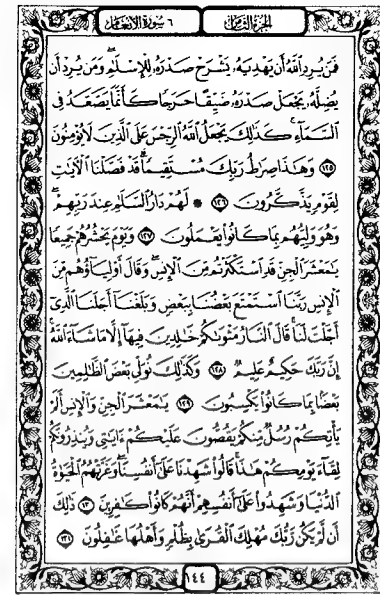 الجزء الثامن ٦ سورة الأنعام
فَمَن يُرِدِ ٱللَّهُ أَن يَهْدِيَهُۥ يَشْرَحْ صَدْرَهُۥ لِلْإِسْلَٰمِۖ وَمَن يُرِدْ أَن
يُضِلَّهُۥ يَجْعَلْ صَدْرَهُۥ ضَيِّقًا حَرَجًا كَأَنَّمَا يَصَّعَّدُ فِى
ٱلسَّمَآءِۚ كَذَٰلِكَ يَجْعَلُ ٱللَّهُ ٱلرِّجْسَ عَلَى ٱلَّذِينَ لَا يُؤْمِنُونَ
١٢٥ وَهَٰذَا صِرَٰطُ رَبِّكَ مُسْتَقِيمًاۗ قَدْ فَصَّلْنَا ٱلْءَايَٰتِ
لِقَوْمٍ يَذَّكَّرُونَ ١٢٦ * لَهُمْ دَارُ ٱلسَّلَٰمِ عِندَ رَبِّهِمْۖ
وَهُوَ وَلِيُّهُم بِمَا كَانُوا۟ يَعْمَلُونَ ١٢٧ وَيَوْمَ يَحْشُرُهُمْ جَمِيعًا
يَٰمَعْشَرَ ٱلْجِنِّ قَدِ ٱسْتَكْثَرْتُم مِّنَ ٱلْإِنسِۖ وَقَالَ أَوْلِيَآؤُهُم مِّنَ
ٱلْإِنسِ رَبَّنَا ٱسْتَمْتَعَ بَعْضُنَا بِبَعْضٍ وَبَلَغْنَآ أَجَلَنَا ٱلَّذِىٓ
أَجَّلْتَ لَنَاۚ قَالَ ٱلنَّارُ مَثْوَىٰكُمْ خَٰلِدِينَ فِيهَآ إِلَّا مَا شَآءَ ٱللَّهُۗ
إِنَّ رَبَّكَ حَكِيمٌ عَلِيمٌ ١٢٨ وَكَذَٰلِكَ نُوَلِّى بَعْضَ ٱلظَّٰلِمِينَ
بَعْضًۢا بِمَا كَانُوا۟ يَكْسِبُونَ ١٢٩ يَٰمَعْشَرَ ٱلْجِنِّ وَٱلْإِنسِ أَلَمْ
يَأْتِكُمْ رُسُلٌ مِّنكُمْ يَقُصُّونَ عَلَيْكُمْ ءَايَٰتِى وَيُنذِرُونَكُمْ
لِقَآءَ يَوْمِكُمْ هَٰذَاۚ قَالُوا۟ شَهِدْنَا عَلَىٰٓ أَنفُسِنَاۖ وَغَرَّتْهُمُ ٱلْحَيَوٰةُ
ٱلدُّنْيَا وَشَهِدُوا۟ عَلَىٰٓ أَنفُسِهِمْ أَنَّهُمْ كَانُوا۟ كَٰفِرِينَ ١٣٠ ذَٰلِكَ
أَن لَّمْ يَكُن رَّبُّكَ مُهْلِكَ ٱلْقُرَىٰ بِظُلْمٍ وَأَهْلُهَا غَٰفِلُونَ ١٣١
١٤٤